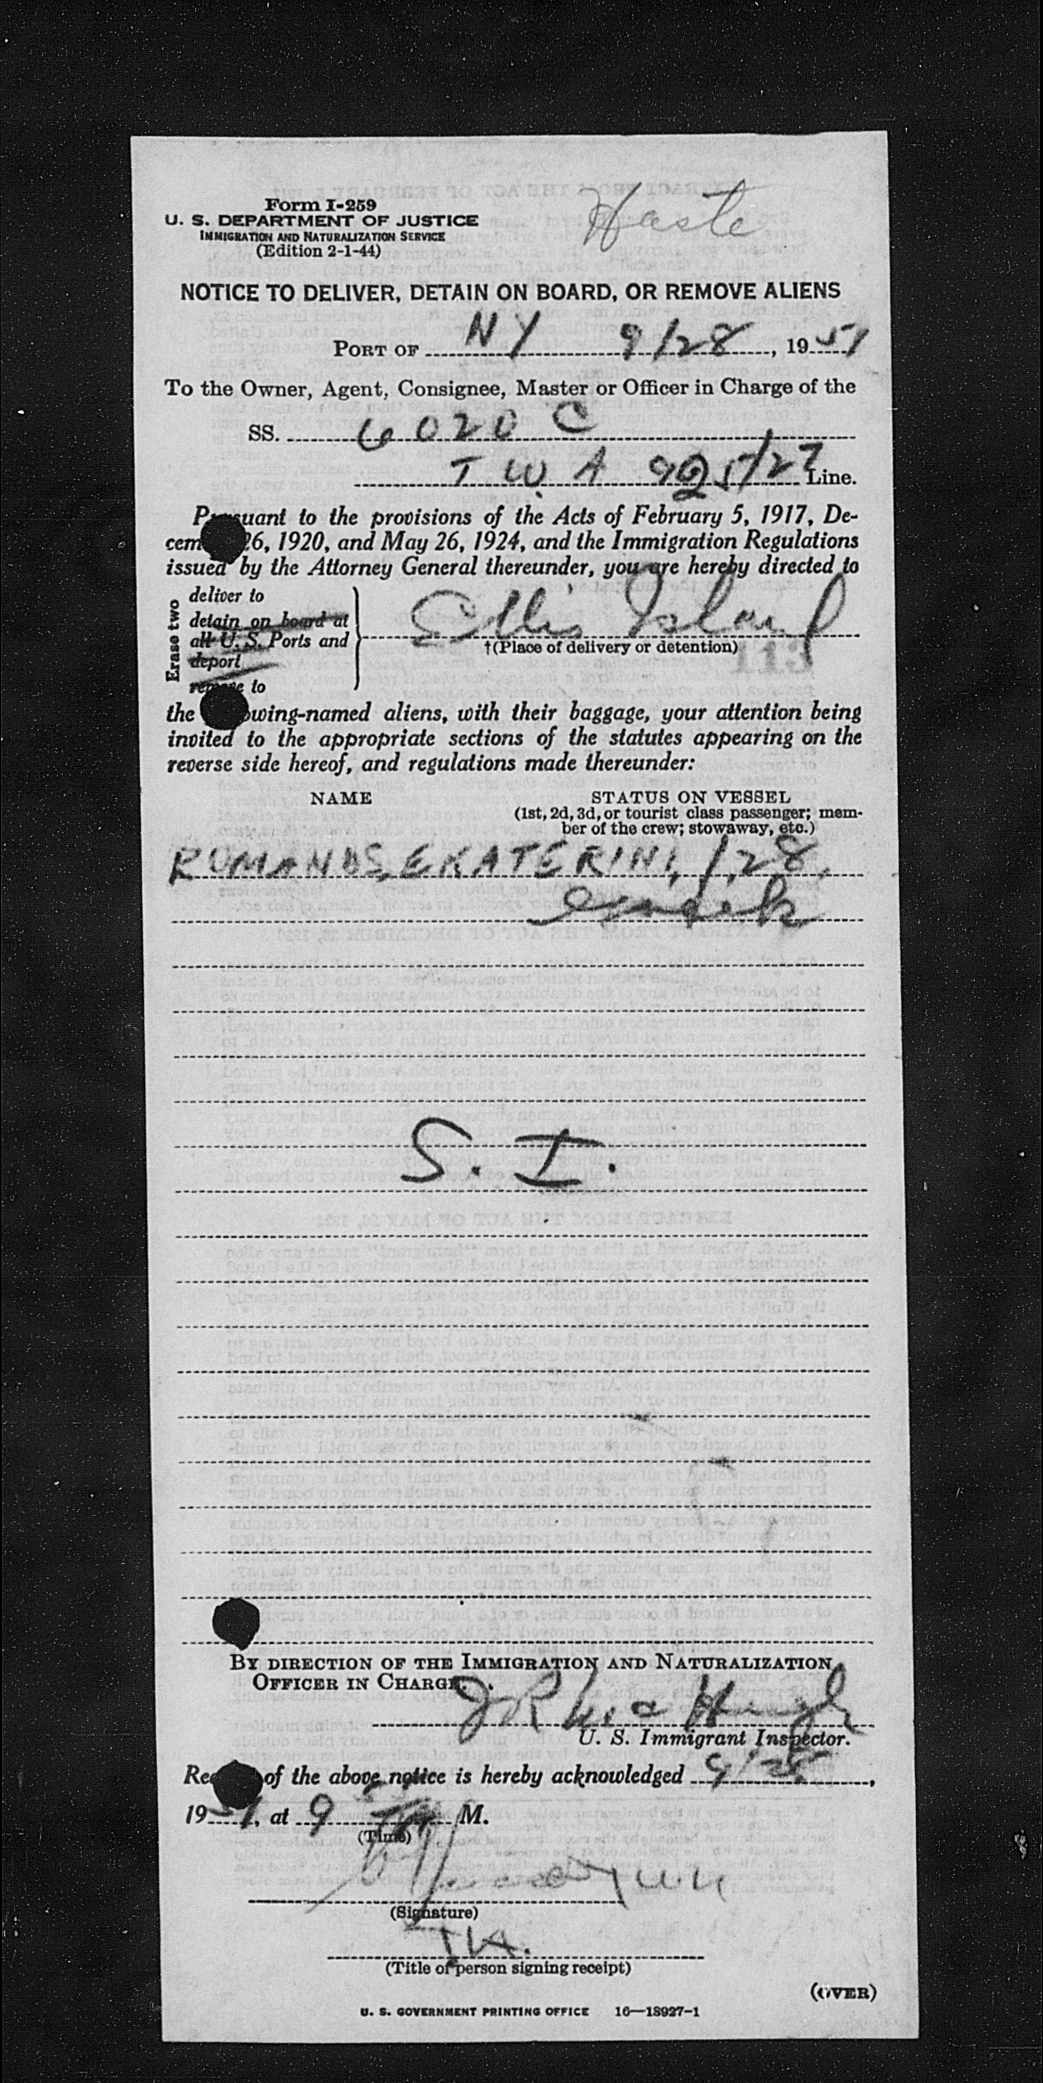 Form I-259
U. S. DEPARTMENT OF JUSTICE
IMMIGRATION AND NATURALIZATION SERVICE
(Edition 2-1-44)
Haste
NOTICE TO DELIVER, DETAIN ON BOARD, OR REMOVE ALIENS
PORT OF NY 9/28, 1951
To the Owner, Agent, Consignee, Master or Officer in Charge of the
SS. 6020 C
T.W.A 925/27 Line.
Pursuant to the provisions of the Acts of February 5, 1917, De-
cem 26, 1920, and May 26, 1924, and the Immigration Regulations
issued by the Attorney General thereunder, you are hereby directed to
Erase two
deliver to
detain on board at
all U. S. Ports and
deport
remove to
Ellis Island
†(Place of delivery or detention)
113
the following-named aliens, with their baggage, your attention being
invited to the appropriate sections of the statutes appearing on the
reverse side hereof, and regulations made thereunder:
NAME
STATUS ON VESSEL
(1st, 2d, 3d, or tourist class passenger; mem-
ber of the crew; stowaway, etc.)
ROMANOS, EKATERINI, 1,28,
S. I.
BY DIRECTION OF THE IMMIGRATION AND NATURALIZATION
OFFICER IN CHARGE.
U. S. Immigrant Inspector.
Receipt of the above notice is hereby acknowledged 9/28,
1951, at 9 M.
(Time)
(Signature)
(Title of person signing receipt)
(OVER)
U. S. GOVERNMENT PRINTING OFFICE 16—18927-1